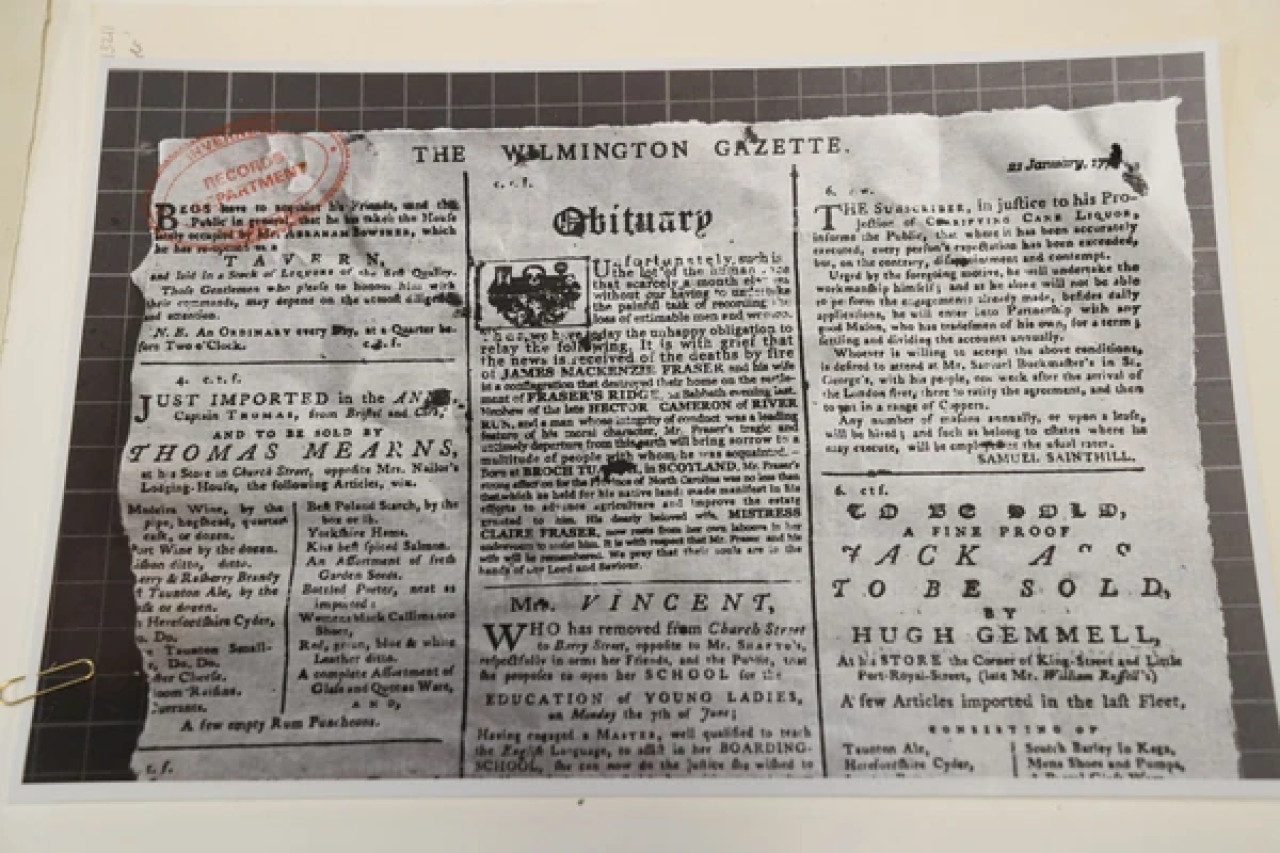 THE WILMINGTON GAZETTE.
21 January,
RECORDS
BEGS leave to acquaint his Friends, and the
Public in general, that he has taken the House
lately occupied by Mr. ABRAHAM BOWSHER, which
he has
TAVERN,
and laid in a Stock of LIQUORS of the Best Quality.
Those Gentlemen who please to honour him with
their commands, may depend on the utmost diligence
and attention.
N. B. An ORDINARY every Day, at a Quarter be-
fore Two o'Clock. c.q.f.
4. c. t. f.
JUST IMPORTED in the
Captain THOMAS, from Bristol and
AND TO BE SOLD BY
THOMAS MEARNS,
at his Store in Church Street, opposite Mrs. Nailor's
Lodging-House, the following Articles, viz.
Madeira Wine, by the
pipe, hogshead, quarter
cask, or dozen.
Port Wine by the dozen.
ditto, ditto.
& Rasberry Brandy
Taunton Ale, by the
or dozen.
Herefordshire Cyder,
Do.
Taunton Small-
Do, Do.
Cheese.
Raisins.
Currants.
Best Poland Starch, by the
box or lb.
Yorkshire Hams.
Kits best spiced Salmon.
An Assortment of fresh
Garden Seeds.
Bottled Porter, neat as
imported:
Womens black Callimanco
Shoes,
Red, green, blue & white
Leather ditto.
A complete Assortment of
Glass and Queens Ware,
AND,
A few empty Rum Puncheons.
c. f.
c. c. f.
Obituary
Unfortunately, such is
the lot of the human
that scarcely a month
without our having to undertake
the painful task of recording the
loss of estimable men and women.
Thus, we have today the unhappy obligation to
relay the following. It is with grief that
the news is received of the deaths by fire
of JAMES MACKENZIE FRASER and his wife
in a conflagration that destroyed their home on the settle-
ment of FRASER'S RIDGE, on Sabbath evening last.
Nephew of the late HECTOR CAMERON of RIVER
RUN, and a man whose integrity of conduct was a leading
feature of his moral character, Mr. Fraser's tragic and
untimely departure from this earth will bring sorrow to a
multitude of people with whom he was acquainted. —
Born at BROCH in SCOTLAND, Mr. Fraser's
strong affection for the Province of North Carolina was no less than
that which he held for his native land: made manifest in his
efforts to advance agriculture and improve the estate
granted to him. His dearly beloved wife, MISTRESS
CLAIRE FRASER, now rests from her own labours in her
endeavours to assist him. It is with respect that Mr. Fraser and his
wife will be remembered. We pray that their souls are in the
hands of our Lord and Saviour.
Mrs. VINCENT,
WHO has removed from Church Street
to Barry Street, opposite to Mr. SHAFTO's,
respectfully informs her Friends, and the Public, that
she proposes to open her SCHOOL for the
EDUCATION of YOUNG LADIES,
on Monday the 7th of June;
Having engaged a MASTER, well qualified to teach
the English Language, to assist in her BOARDING-
SCHOOL, she can now do the justice she wished to
6.
THE SUBSCRIBER, in justice to his Pro-
fession of CLARIFYING CANE LIQUOR,
informs the Public, that where it has been accurately
executed, every person's expectation has been exceeded,
but, on the contrary, disappointment and contempt.
Urged by the foregoing motive, he will undertake the
workmanship himself; and as he alone will not be able
to perform the engagements already made, besides daily
applications, he will enter into Partnership with any
good Mason, who has tradesmen of his own, for a term;
settling and dividing the accounts annually.
Whoever is willing to accept the above conditions,
is desired to attend at Mr. Samuel Buckmaster's in St.
George's, with his people, one week after the arrival of
the London fleet; there to ratify the agreement, and then
to put in a range of Coppers.
Any number of masons annually, or upon a lease,
will be hired; and such as belong to estates where he
may execute, will be employed the usual rates.
SAMUEL SAINTHILL.
6. ct f.
TO BE SOLD,
A FINE PROOF
JACK ASS
TO BE SOLD,
BY
HUGH GEMMELL,
At his STORE the Corner of King-Street and Little
Port-Royal-Street, (late Mr. William Russell's)
A few Articles imported in the last Fleet,
CONSISTING OF
Taunton Ale,
Herefordshire Cyder,
Scotch Barley in Kegs,
Mens Shoes and Pumps,